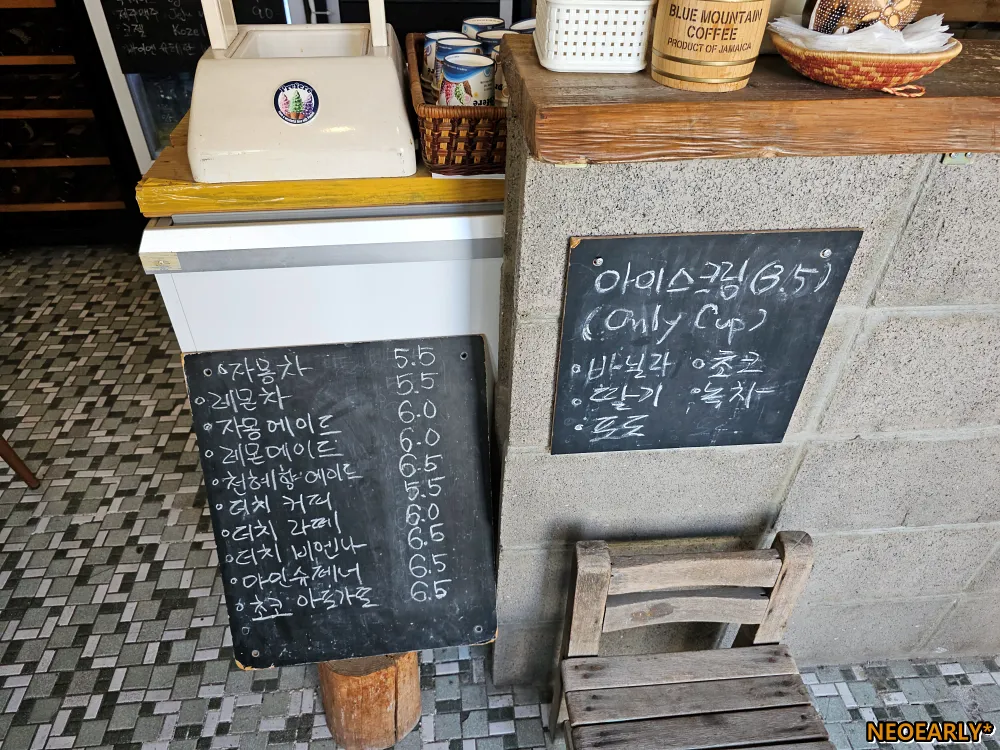 BLUE MOUNTAIN
COFFEE
PRODUCT OF JAMAICA
아이스크림(3.5)
(Only Cup)
◦바닐라 ◦초코
◦딸기 ◦녹차
◦포도
◦자몽차 5.5
◦레몬차 5.5
◦자몽에이드 6.0
◦레몬에이드 6.0
◦천혜향에이드 6.5
◦더치 커피 5.5
◦더치 라떼 6.0
◦더치 비엔나 6.5
◦아인슈페너 6.5
◦초코 아포가토 6.5
NEOEARLY*